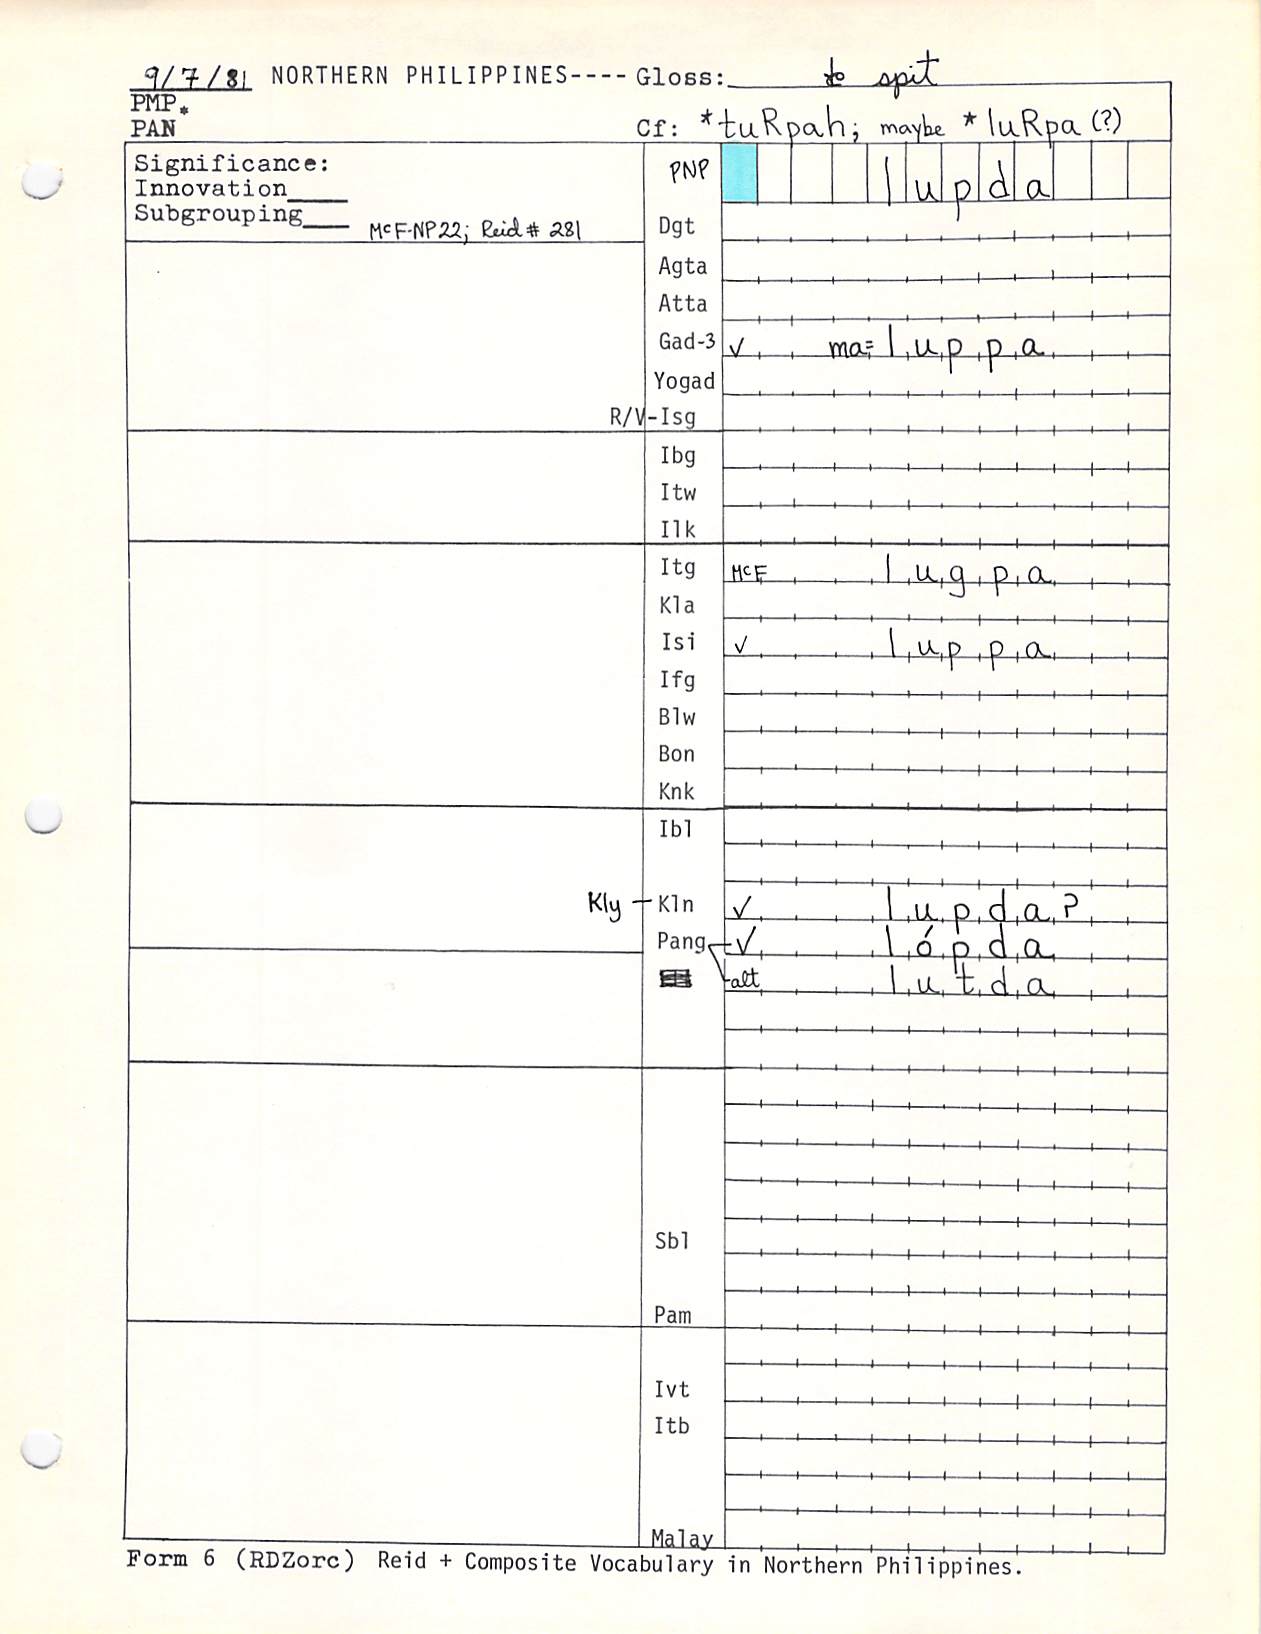 9/7/81 NORTHERN PHILIPPINES---- Gloss: to spit
PMP*
PAN Cf: *tuRpah; maybe *luRpa (?)
Significance: PNP lupda
Innovation____
Subgrouping____ McF-NP22; Reid # 281
Dgt
Agta
Atta
Gad-3 ✓ ma= luppa
Yogad
R/V-Isg
Ibg
Itw
Ilk
Itg McF lugpa
Kla
Isi ✓ luppa
Ifg
Blw
Bon
Knk
Ibl
Kly — Kln ✓ lupda?
Pang ✓ lópda
alt lutda
Sbl
Pam
Ivt
Itb
Malay
Form 6 (RDZorc) Reid + Composite Vocabulary in Northern Philippines.